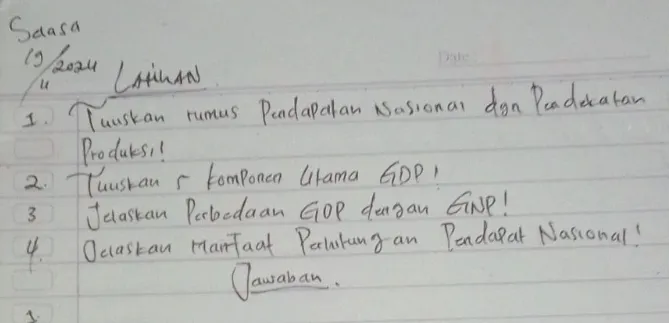 Selasa
19/11/2024
LATIHAN
1. Tuliskan rumus Pendapatan Nasional dgn Pendekatan
Produksi!
2. Tuliskan 5 komponen Utama GDP!
3 Jelaskan Perbedaan GDP dengan GNP!
4. Jelaskan Manfaat Perhitungan Pendapat Nasional!
Jawaban.
1.
Date